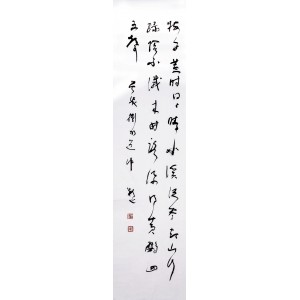 梅子黄时日日晴小溪泛尽却山行
绿阴不减来时路添得黄鹂四
五声